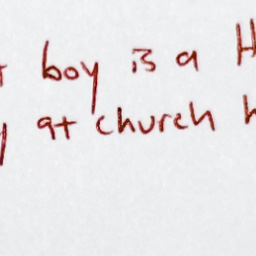 boy is a H
at church h